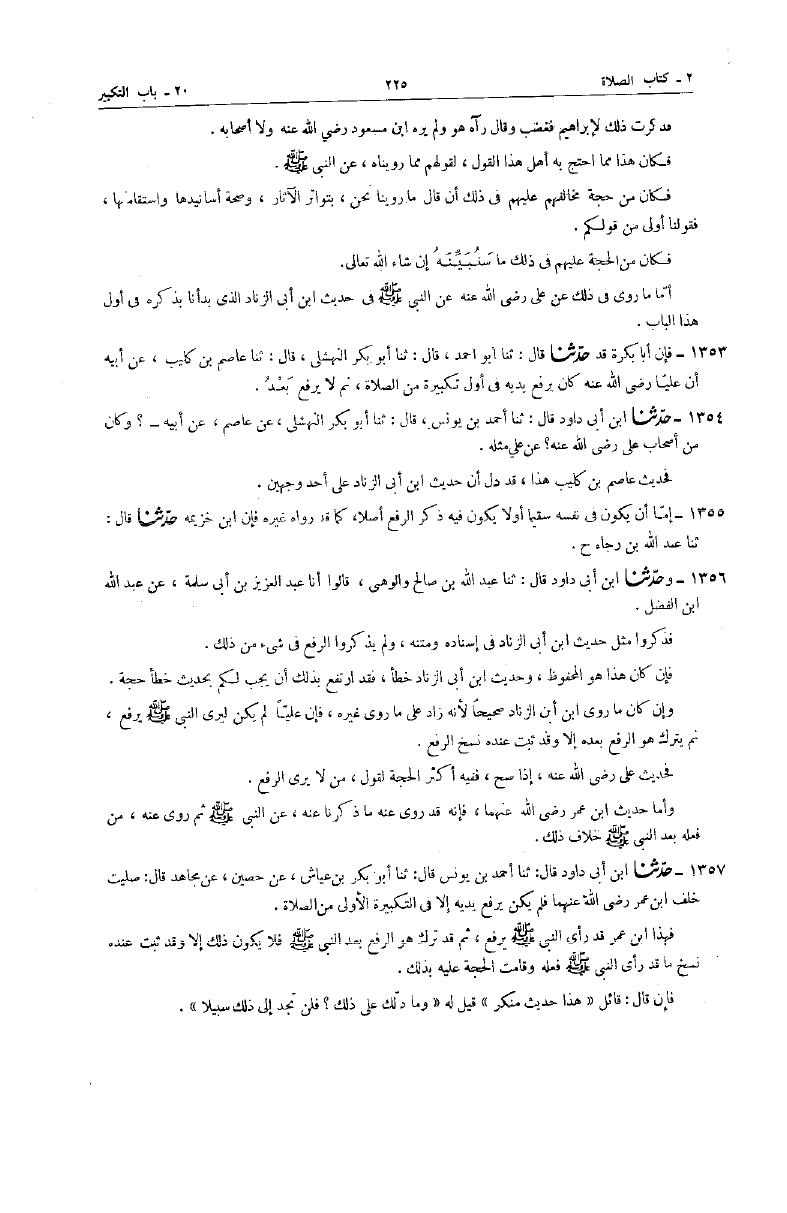 ٢ - كتاب الصلاة ٢٢٥ ٢٠ - باب التكبير
فدكرت ذلك لإبراهيم فغضب وقال رآه هو ولم يره ابن مسعود رضي الله عنه ولا أصحابه .
فكان هذا مما احتج به أهل هذا القول ، لقولهم مما رويناه ، عن النبي ﷺ .
فكان من حجة مخالفهم عليهم فى ذلك أن قال ما روينا نحن ، بتواتر الآثار ، وصحة أسانيدها واستقامتها ،
فقولنا أولى من قولكم .
فكان من الحجة عليهم فى ذلك ما سَنُبَيِّنَهُ إن شاء الله تعالى.
أمّا ما روى فى ذلك عن على رضى الله عنه عن النبي ﷺ فى حديث ابن أبى الزناد الذى بدأنا بذكره فى أول
هذا الباب .
١٣٥٣ - فإن أبا بكرة قد حدّثنا قال : ثنا أبو احمد ، قال : ثنا أبو بكر النهشلى ، قال : ثنا عاصم بن كليب ، عن أبيه
أن عليّا رضى الله عنه كان يرفع يديه فى أول تكبيرة من الصلاة ، ثم لا يرفع بَعْدُ .
١٣٥٤ - حدّثنا ابن أبى داود قال : ثنا أحمد بن يونس ، قال : ثنا أبو بكر النهشلى ، عن عاصم ، عن أبيه – ؟ وكان
من أصحاب على رضى الله عنه؟ عن علي مثله .
فحديث عاصم بن كليب هذا ، قد دل أن حديث ابن أبى الزناد على أحد وجهين .
١٣٥٥ - إمّا أن يكون فى نفسه سقيما أولا يكون فيه ذكر الرفع أصلا، كما قد رواه غيره فإن ابن خزيمه حدّثنا قال :
ثنا عبد الله بن رجاء ح .
١٣٥٦ - وحدّثنا ابن أبى داود قال : ثنا عبد الله بن صالح والوهبى ، قالوا أنا عبد العزيز بن أبى سلمة ، عن عبد الله
ابن الفضل .
فذكروا مثل حديث ابن أبى الزناد فى إسناده ومتنه ، ولم يذكروا الرفع فى شىء من ذلك .
فإن كان هذا هو المحفوظ ، وحديث ابن أبى الزناد خطأ ، فقد ارتفع بذلك أن يجب لكم بحديث خطأ حجة .
وإن كان ما روى ابن أبن الزناد صحيحاً لأنه زاد على ما روى غيره ، فإن عليّاً لم يكن ليرى النبي ﷺ يرفع ،
ثم يترك هو الرفع بعده إلا وقد ثبت عنده نسخ الرفع .
فحديث على رضى الله عنه ، إذا صح ، ففيه أكثر الحجة لقول ، من لا يرى الرفع .
وأما حديث ابن عمر رضى الله عنهما ، فإنه قد روى عنه ما ذكرنا عنه ، عن النبي ﷺ ثم روى عنه ، من
فعله بعد النبي ﷺ خلاف ذلك .
١٣٥٧ - حدّثنا ابن أبى داود قال: ثنا أحمد بن يونس قال: ثنا أبو بكر بن عياش ، عن حصين ، عن مجاهد قال: صليت
خلف ابن عمر رضى الله عنهما فلم يكن يرفع يديه إلا فى التكبيرة الأولى من الصلاة .
فهذا ابن عمر قد رأى النبي ﷺ يرفع ، ثم قد ترك هو الرفع بعد النبي ﷺ فلا يكون ذلك إلا وقد ثبت عنده
نسخ ما قد رأى النبي ﷺ فعله وقامت الحجة عليه بذلك .
فإن قال : قائل « هذا حديث منكر » قيل له « وما دلّك على ذلك ؟ فلن تجد إلى ذلك سبيلا » .